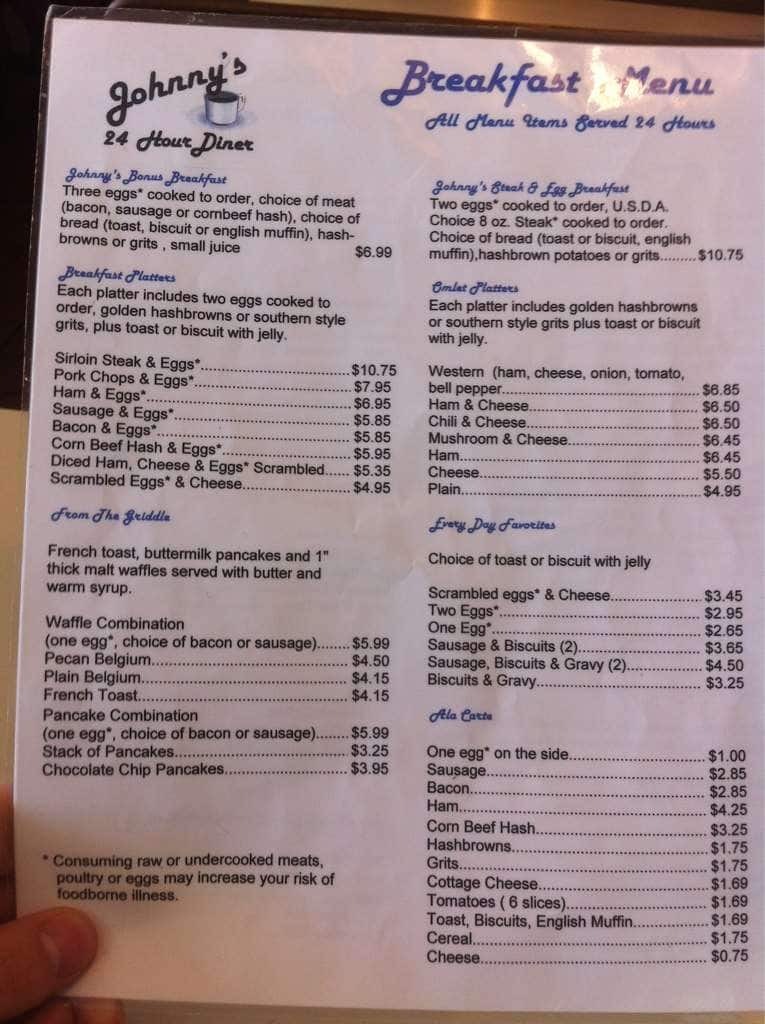 Johnny's
24 Hour Diner
Breakfast Menu
All Menu Items Served 24 Hours
Johnny's Bonus Breakfast
Three eggs* cooked to order, choice of meat
(bacon, sausage or cornbeef hash), choice of
bread (toast, biscuit or english muffin), hash-
browns or grits , small juice $6.99
Breakfast Platters
Each platter includes two eggs cooked to
order, golden hashbrowns or southern style
grits, plus toast or biscuit with jelly.
Sirloin Steak & Eggs*.................................$10.75
Pork Chops & Eggs*................................... $7.95
Ham & Eggs*............................................... $6.95
Sausage & Eggs*........................................ $5.85
Bacon & Eggs*............................................ $5.85
Corn Beef Hash & Eggs*............................. $5.95
Diced Ham, Cheese & Eggs* Scrambled...... $5.35
Scrambled Eggs* & Cheese......................... $4.95
From The Griddle
French toast, buttermilk pancakes and 1"
thick malt waffles served with butter and
warm syrup.
Waffle Combination
(one egg*, choice of bacon or sausage)........ $5.99
Pecan Belgium............................................. $4.50
Plain Belgium............................................... $4.15
French Toast................................................ $4.15
Pancake Combination
(one egg*, choice of bacon or sausage)........ $5.99
Stack of Pancakes....................................... $3.25
Chocolate Chip Pancakes............................ $3.95
* Consuming raw or undercooked meats,
poultry or eggs may increase your risk of
foodborne illness.
Johnny's Steak & Egg Breakfast
Two eggs* cooked to order, U.S.D.A.
Choice 8 oz. Steak* cooked to order.
Choice of bread (toast or biscuit, english
muffin),hashbrown potatoes or grits......... $10.75
Omlet Platters
Each platter includes golden hashbrowns
or southern style grits plus toast or biscuit
with jelly.
Western (ham, cheese, onion, tomato,
bell pepper............................................. $6.85
Ham & Cheese....................................... $6.50
Chili & Cheese........................................ $6.50
Mushroom & Cheese.............................. $6.45
Ham........................................................ $6.45
Cheese................................................... $5.50
Plain....................................................... $4.95
Every Day Favorites
Choice of toast or biscuit with jelly
Scrambled eggs* & Cheese..................... $3.45
Two Eggs*............................................... $2.95
One Egg*................................................. $2.65
Sausage & Biscuits (2)............................ $3.65
Sausage, Biscuits & Gravy (2)................. $4.50
Biscuits & Gravy...................................... $3.25
Ala Carte
One egg* on the side............................... $1.00
Sausage.................................................. $2.85
Bacon...................................................... $2.85
Ham......................................................... $4.25
Corn Beef Hash....................................... $3.25
Hashbrowns............................................ $1.75
Grits......................................................... $1.75
Cottage Cheese....................................... $1.69
Tomatoes ( 6 slices)................................ $1.69
Toast, Biscuits, English Muffin................. $1.69
Cereal...................................................... $1.75
Cheese.................................................... $0.75